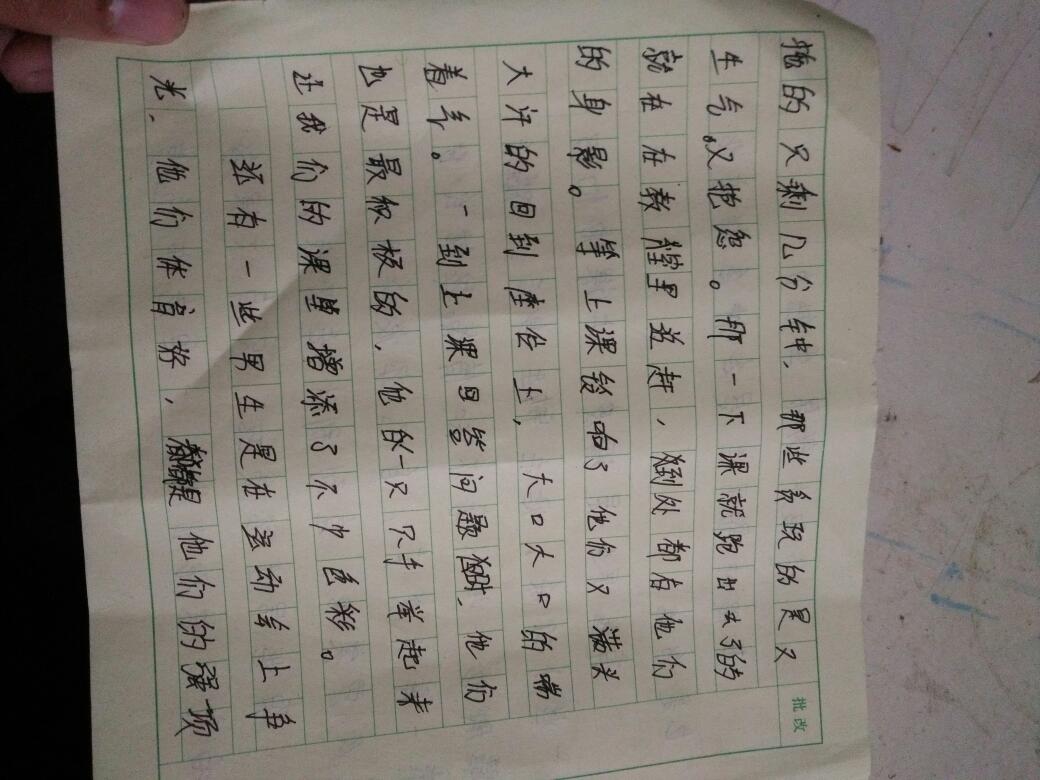 拖的只剩几分钟，那些贪玩的是又
生气又抱怨。那一下课就跑出去了的
就在在教程里追赶，到处都有他们
的身影。等上课铃响了他们又满头
大汗的回到座位上，大口大口的喘
着气。一到上课回答问题时，他们
也是最积极的，他的一只只手举起来
让我们的课堂增添了不少色彩。
还有一些男生是在运动会上争
光，他们体育好，都是他们的强项
批改